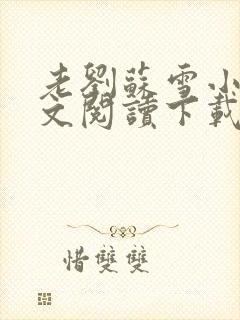 老劉蘇雪小
文閱讀下載
惜雙雙